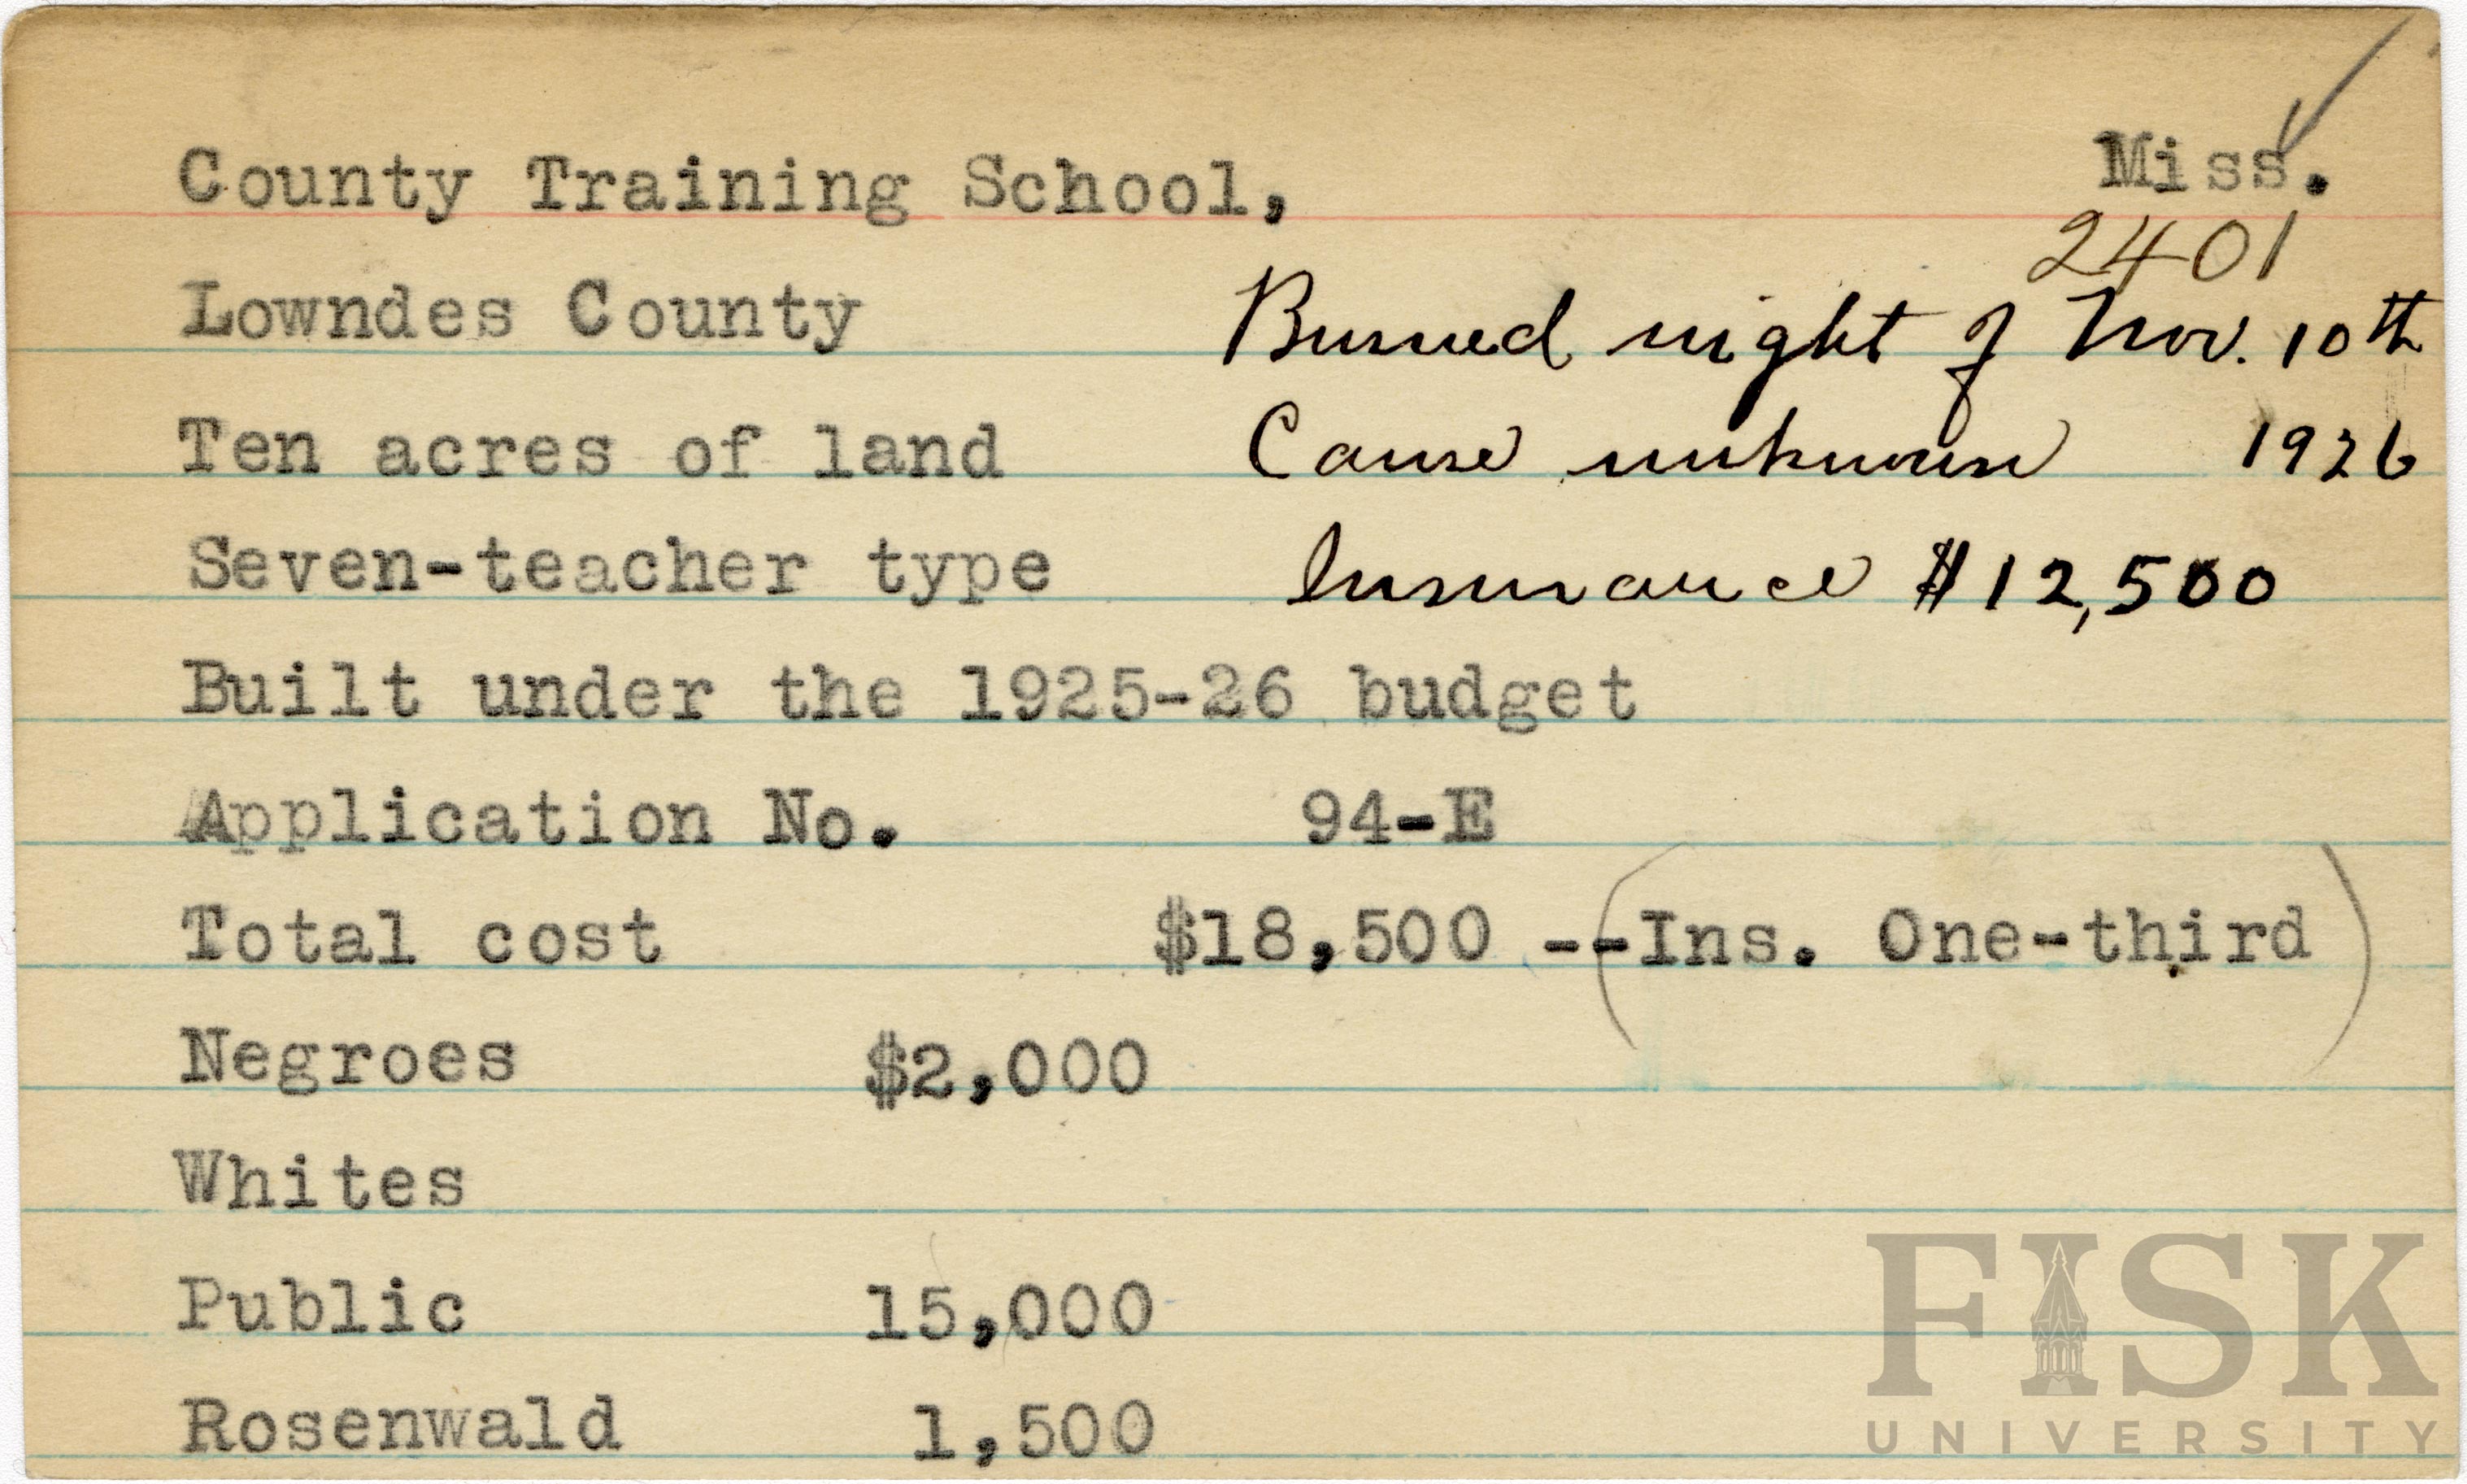 County Training School, Miss.
2401
Lowndes County Burned night of Nov. 10th
Ten acres of land Cause unknown 1926
Seven-teacher type Insurance $12,500
Built under the 1925-26 budget
Application No. 94-E
Total cost $18,500 --(Ins. One-third)
Negroes $2,000
Whites
Public 15,000
Rosenwald 1,500
FISK
UNIVERSITY